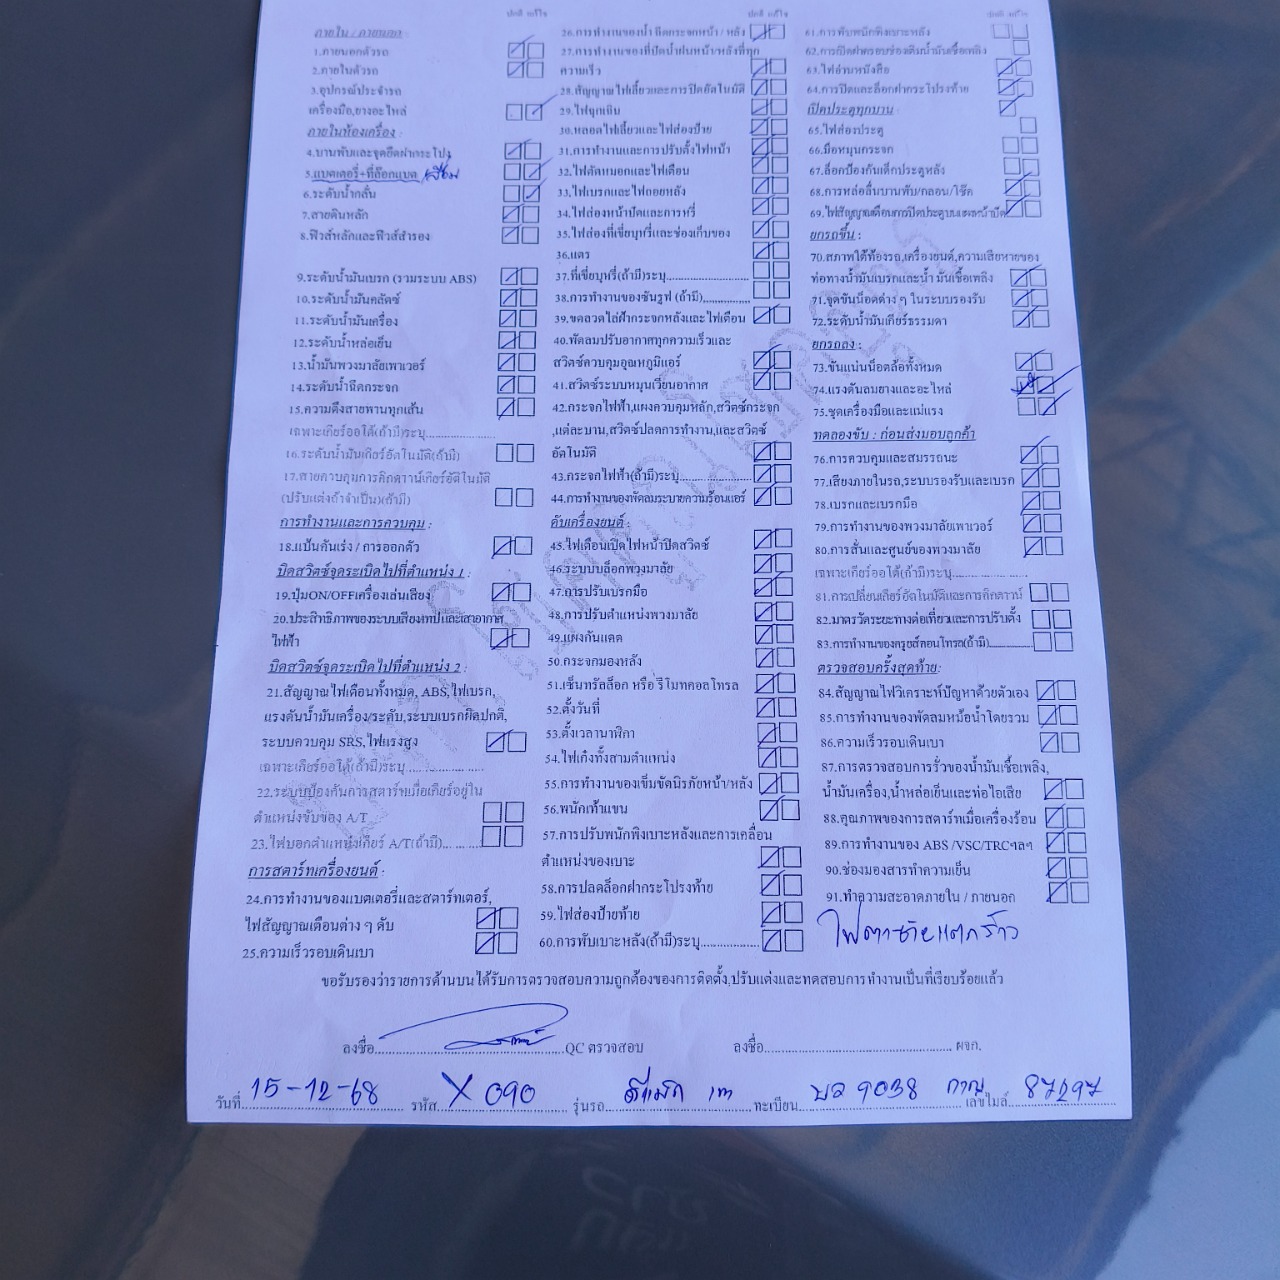 ปกติ แก้ไข
ภายใน / ภายนอก :
1.ภายนอกตัวรถ
2.ภายในตัวรถ
3.อุปกรณ์ประจำรถ
เครื่องมือ,ยางอะไหล่
ภายในห้องเครื่อง :
4.บานพับและจุดยึดฝากระโปง
5.แบตเตอรี่+ที่ล็อกแบต เสื่อม
6.ระดับน้ำกลั่น
7.สายดินหลัก
8.ฟิวส์หลักและฟิวส์สำรอง
9.ระดับน้ำมันเบรก (รวมระบบ ABS)
10.ระดับน้ำมันคลัตซ์
11.ระดับน้ำมันเครื่อง
12.ระดับน้ำหล่อเย็น
13.น้ำมันพวงมาลัยเพาเวอร์
14.ระดับน้ำฉีดกระจก
15.ความตึงสายพานทุกเส้น
เฉพาะเกียร์ออโต้(ถ้ามี)ระบุ
16.ระดับน้ำมันเกียร์อัตโนมัติ(ถ้ามี)
17.สายควบคุมการคิกดาวน์เกียร์อัตโนมัติ
(ปรับแต่งถ้าจำเป็น)(ถ้ามี)
การทำงานและการควบคุม :
18.แป้นคันเร่ง / การออกตัว
บิดสวิตซ์จุดระเบิดไปที่ตำแหน่ง 1 :
19.ปุ่มON/OFFเครื่องเล่นเสียง
20.ประสิทธิภาพของระบบเสียงเทปและเสาอากาศ
ไฟฟ้า
บิดสวิตซ์จุดระเบิดไปที่ตำแหน่ง 2 :
21.สัญญาณไฟเตือนทั้งหมด, ABS,ไฟเบรก,
แรงดันน้ำมันเครื่อง/ระดับ,ระบบเบรกผิดปกติ,
ระบบควบคุม SRS,ไฟแรงสูง
เฉพาะเกียร์ออโต้(ถ้ามี)ระบุ
22.ระบบป้องกันการสตาร์ทเมื่อเกียร์อยู่ใน
ตำแหน่งขับของ A/T
23.ไฟบอกตำแหน่งเกียร์ A/T(ถ้ามี)
การสตาร์ทเครื่องยนต์ :
24.การทำงานของแบตเตอรี่และสตาร์ทเตอร์,
ไฟสัญญาณเตือนต่าง ๆ ดับ
25.ความเร็วรอบเดินเบา
ปกติ แก้ไข
26.การทำงานของน้ำฉีดกระจกหน้า / หลัง
27.การทำงานของที่ปัดน้ำฝนหน้า/หลังที่ทุก
ความเร็ว
28.สัญญาณไฟเลี้ยวและการปิดอัตโนมัติ
29.ไฟฉุกเฉิน
30.หลอดไฟเลี้ยวและไฟส่องป้าย
31.การทำงานและการปรับตั้งไฟหน้า
32.ไฟตัดหมอกและไฟเตือน
33.ไฟเบรกและไฟถอยหลัง
34.ไฟส่องหน้าปัดและการหรี่
35.ไฟส่องที่เขี่ยบุหรี่และช่องเก็บของ
36.แตร
37.ที่เขี่ยบุหรี่(ถ้ามี)ระบุ
38.การทำงานของซันรูฟ (ถ้ามี)
39.ขดลวดไล่ฝ้ากระจกหลังและไฟเตือน
40.พัดลมปรับอากาศทุกความเร็วและ
สวิตซ์ควบคุมอุณหภูมิแอร์
41.สวิตซ์ระบบหมุนเวียนอากาศ
42.กระจกไฟฟ้า,แผงควบคุมหลัก,สวิตซ์กระจก
,แต่ละบาน,สวิตซ์ปลดการทำงาน,และสวิตซ์
อัตโนมัติ
43.กระจกไฟฟ้า(ถ้ามี)ระบุ
44.การทำงานของพัดลมระบายความร้อนแอร์
ดับเครื่องยนต์ :
45.ไฟเตือนเปิดไฟหน้าปิดสวิตซ์
46.ระบบบล็อกพวงมาลัย
47.การปรับเบรกมือ
48.การปรับตำแหน่งพวงมาลัย
49.แผงกันแดด
50.กระจกมองหลัง
51.เซ็นทรัลล็อก หรือ รีโมทคอลโทรล
52.ตั้งวันที่
53.ตั้งเวลานาฬิกา
54.ไฟเก๋งทั้งสามตำแหน่ง
55.การทำงานของเข็มขัดนิรภัยหน้า/หลัง
56.พนักเท้าแขน
57.การปรับพนักพิงเบาะหลังและการเคลื่อน
ตำแหน่งของเบาะ
58.การปลดล็อกฝากระโปรงท้าย
59.ไฟส่องป้ายท้าย
60.การพับเบาะหลัง(ถ้ามี)ระบุ
ปกติ แก้ไข
61.การพับพนักพิงเบาะหลัง
62.การเปิดฝาครอบช่องเติมน้ำมันเชื้อเพลิง
63.ไฟอ่านหนังสือ
64.การปิดและล็อกฝากระโปรงท้าย
เปิดประตูทุกบาน :
65.ไฟส่องประตู
66.มือหมุนกระจก
67.ล็อกป้องกันเด็กประตูหลัง
68.การหล่อลื่นบานพับ/กลอน/โช๊ค
69.ไฟสัญญาณเตือนการปิดประตูบนแผงหน้าปัด
ยกรถขึ้น :
70.สภาพใต้ท้องรถ,เครื่องยนต์,ความเสียหายของ
ท่อทางน้ำมันเบรกและน้ำมันเชื้อเพลิง
71.จุดขันน็อตต่าง ๆ ในระบบรองรับ
72.ระดับน้ำมันเกียร์ธรรมดา
ยกรถลง :
73.ขันแน่นน็อตล้อทั้งหมด
74.แรงดันลมยางและอะไหล่
75.ชุดเครื่องมือและแม่แรง
ทดลองขับ : ก่อนส่งมอบลูกค้า
76.การควบคุมและสมรรถนะ
77.เสียงภายในรถ,ระบบรองรับและเบรก
78.เบรกและเบรกมือ
79.การทำงานของพวงมาลัยเพาเวอร์
80.การสั่นและศูนย์ของพวงมาลัย
เฉพาะเกียร์ออโต้(ถ้ามี)ระบุ
81.การเปลี่ยนเกียร์อัตโนมัติและการคิกดาวน์
82.มาตรวัดระยะทางต่อเที่ยวและการปรับตั้ง
83.การทำงานของครูซส์คอนโทรล(ถ้ามี)
ตรวจสอบครั้งสุดท้าย:
84.สัญญาณไฟวิเคราะห์ปัญหาด้วยตัวเอง
85.การทำงานของพัดลมหม้อน้ำโดยรวม
86.ความเร็วรอบเดินเบา
87.การตรวจสอบการรั่วของน้ำมันเชื้อเพลิง,
น้ำมันเครื่อง,น้ำหล่อเย็นและท่อไอเสีย
88.คุณภาพของการสตาร์ทเมื่อเครื่องร้อน
89.การทำงานของ ABS /VSC/TRCฯลฯ
90.ช่องมองสารทำความเย็น
91.ทำความสะอาดภายใน / ภายนอก
ไฟตาซ้ายแตกร้าว
ขอรับรองว่ารายการด้านบนได้รับการตรวจสอบความถูกต้องของการติดตั้ง,ปรับแต่งและทดสอบการทำงานเป็นที่เรียบร้อยแล้ว
ลงชื่อ QC ตรวจสอบ ลงชื่อ ผจก.
วันที่ 15-12-68 รหัส X 090 รุ่นรถ ดีแม็ก ทะเบียน บล 9038 กาญ เลขไมล์ 87297